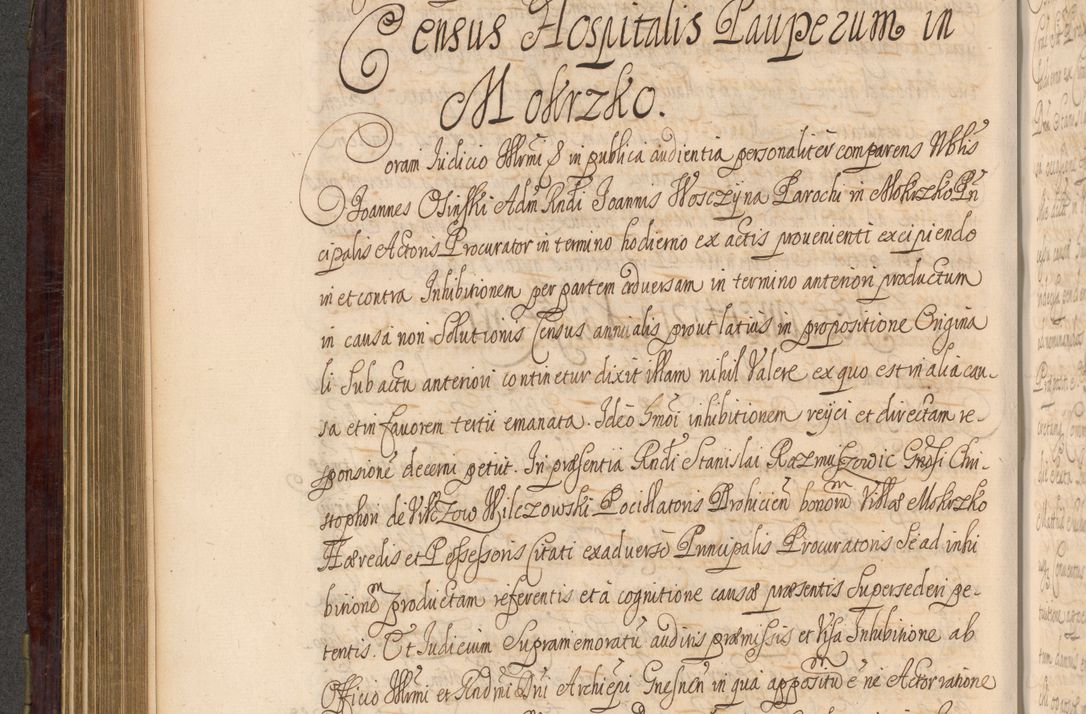 Census Hospitalis Pauperum in
Mokrzko.
Coram Iudicio Illrmi & in publica audientia personaliter comparens Nblis
Joannes Osinski Adm Rndi Joannis Wosczyna Parochi in Mokrzko Prin
cipalis Actoris Procurator in termino hodierno ex actis provenienti excipiendo
in et contra Inhibitionem per partem adversam in termino anteriori productum
in causa non Solutionis Census annualis prout latius in propositione Origina
li Sub actu anteriori continetur dixit illam nihil Valere ex quo est in alia cau-
sa et in favorem tertii emanata. Ideo Smoi inhibitionem reijci et directam re-
sponsione decerni petijt. In præsentia Rndi Stanislai Razmuszowic Gnosi Chri-
stophori de Wilczow Wilczowski Pocillatoris bonorum Villæ Mokrzko
Hæredis et Possessoris Citati ex adverso Principalis Procuratoris Se ad inhi
bitionem productam referentis et a cognitione causæ præsentis Supersederi pe-
tentis. Et Iudicium Supramemoratu auditis præmissis et Visa Inhibitione ab
Officio Illrmi et Rndmi Dni Archiepi Gnesnen in qua appositu e ne Actor ratione